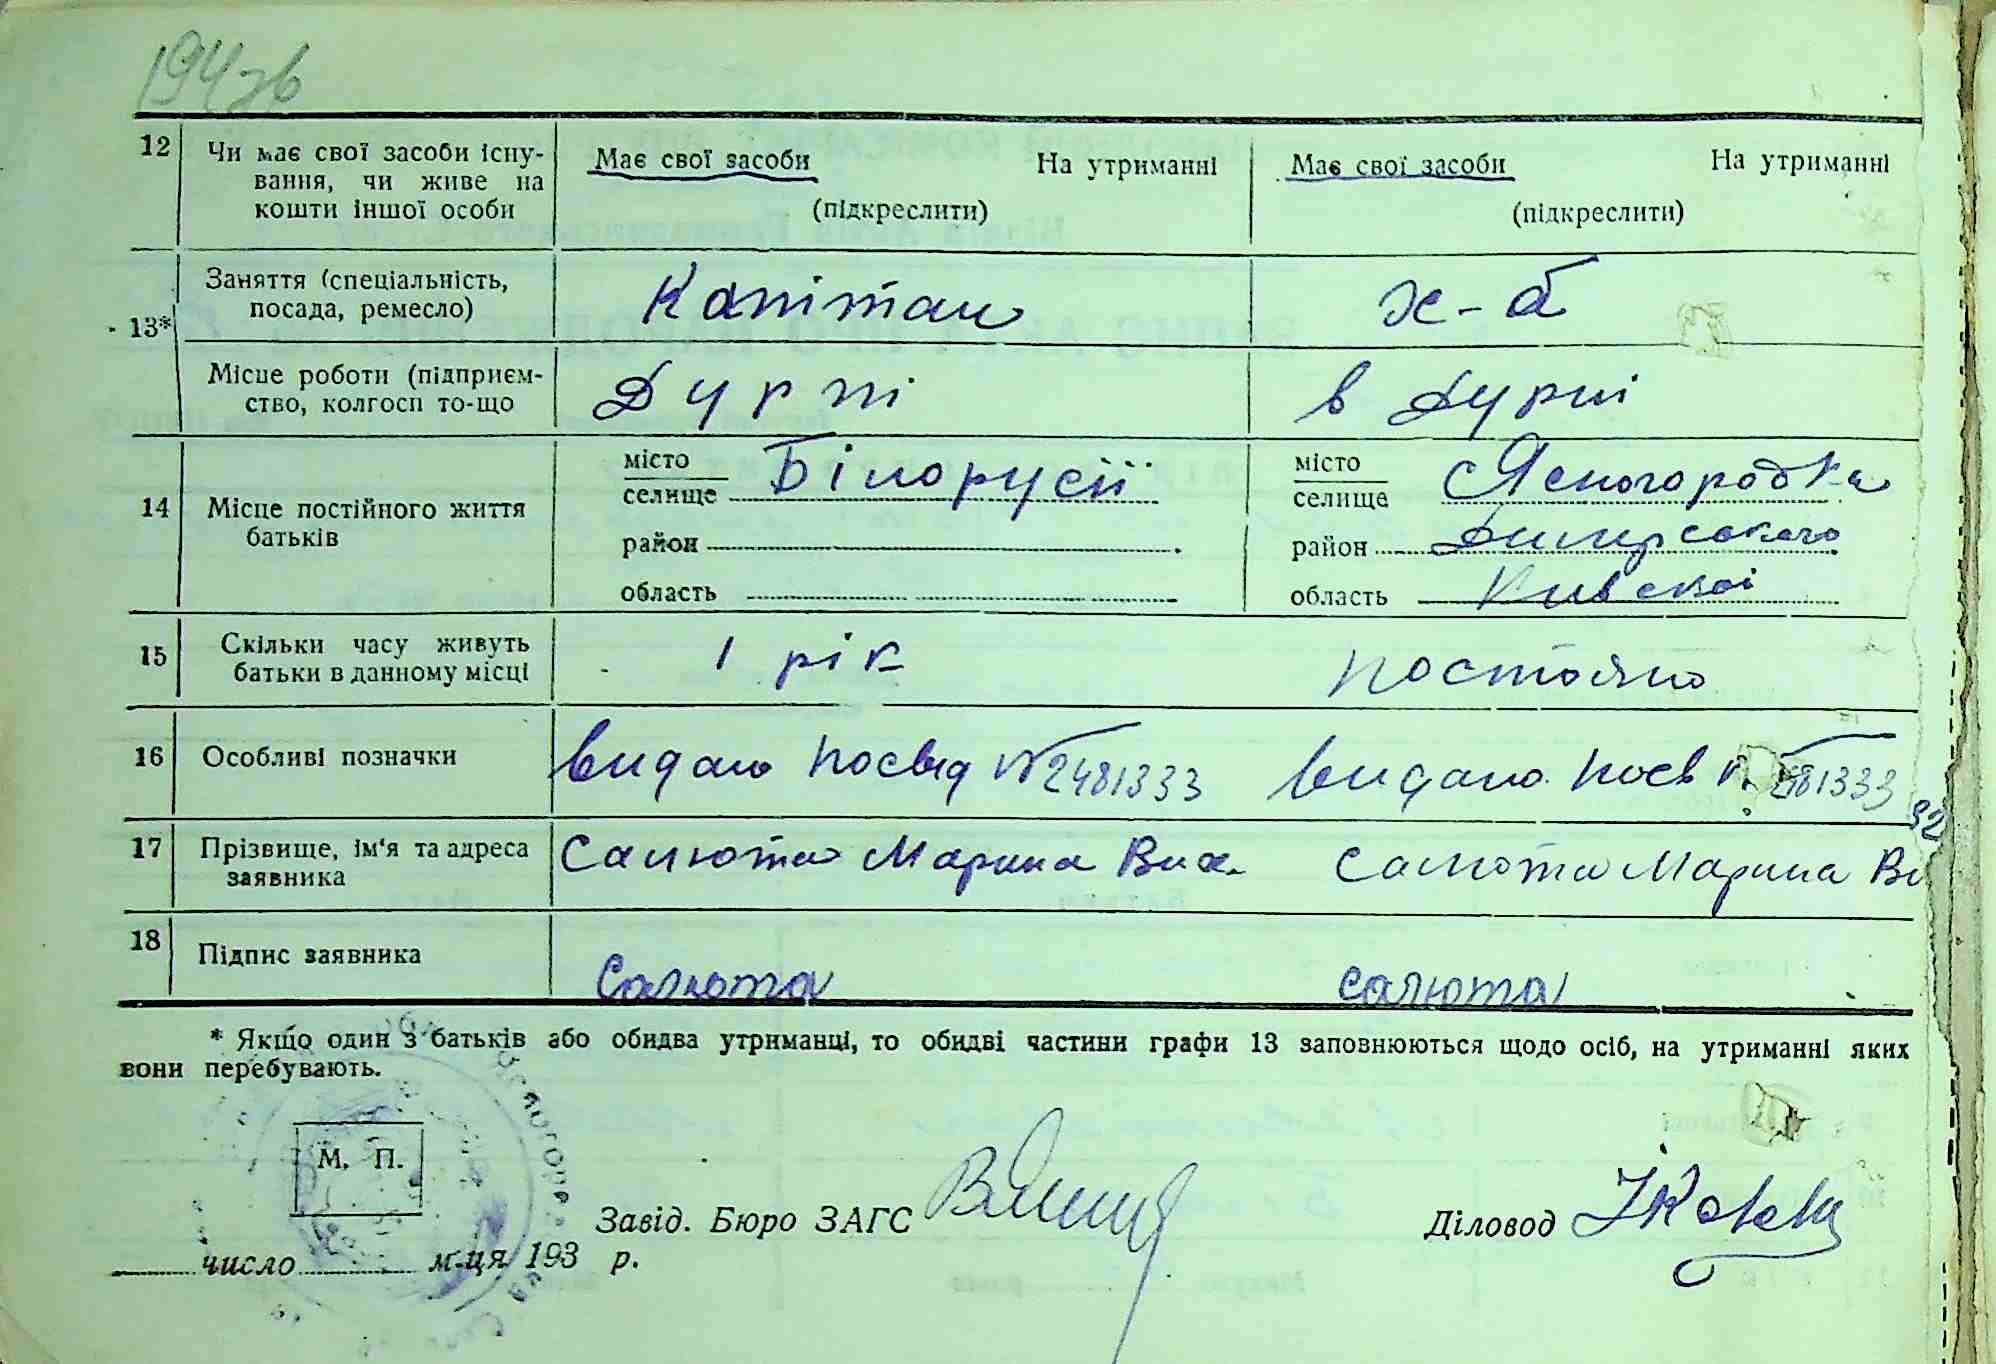 194зв
12 Чи має свої засоби існу-
вання, чи живе на
кошти іншої особи
Має свої засоби На утриманні
(підкреслити)
Має свої засоби На утриманні
(підкреслити)
13*
Заняття (спеціальність,
посада, ремесло)
Капітан
х-б
Місце роботи (підприєм-
ство, колгосп то-що
Дурпі
в Дурпі
14 Місце постійного життя
батьків
місто
селище Білорусії
район
область
місто
селище с Ясногородка
район Димирського
область Київскої
15 Скільки часу живуть
батьки в данному місці
1 рік
постояно
16 Особливі позначки
видано посвід № 2481333
видано посв 481333
32
17 Прізвище, ім'я та адреса
заявника
Салюта Марина Вик.
Салюта Марина Ви
18 Підпис заявника
Салюта
Салюта
* Якщо один з батьків або обидва утриманці, то обидві частини графи 13 заповнюються щодо осіб, на утриманні яких
вони перебувають.
М. П.
Завід. Бюро ЗАГС
Діловод
число м-ця 193 р.